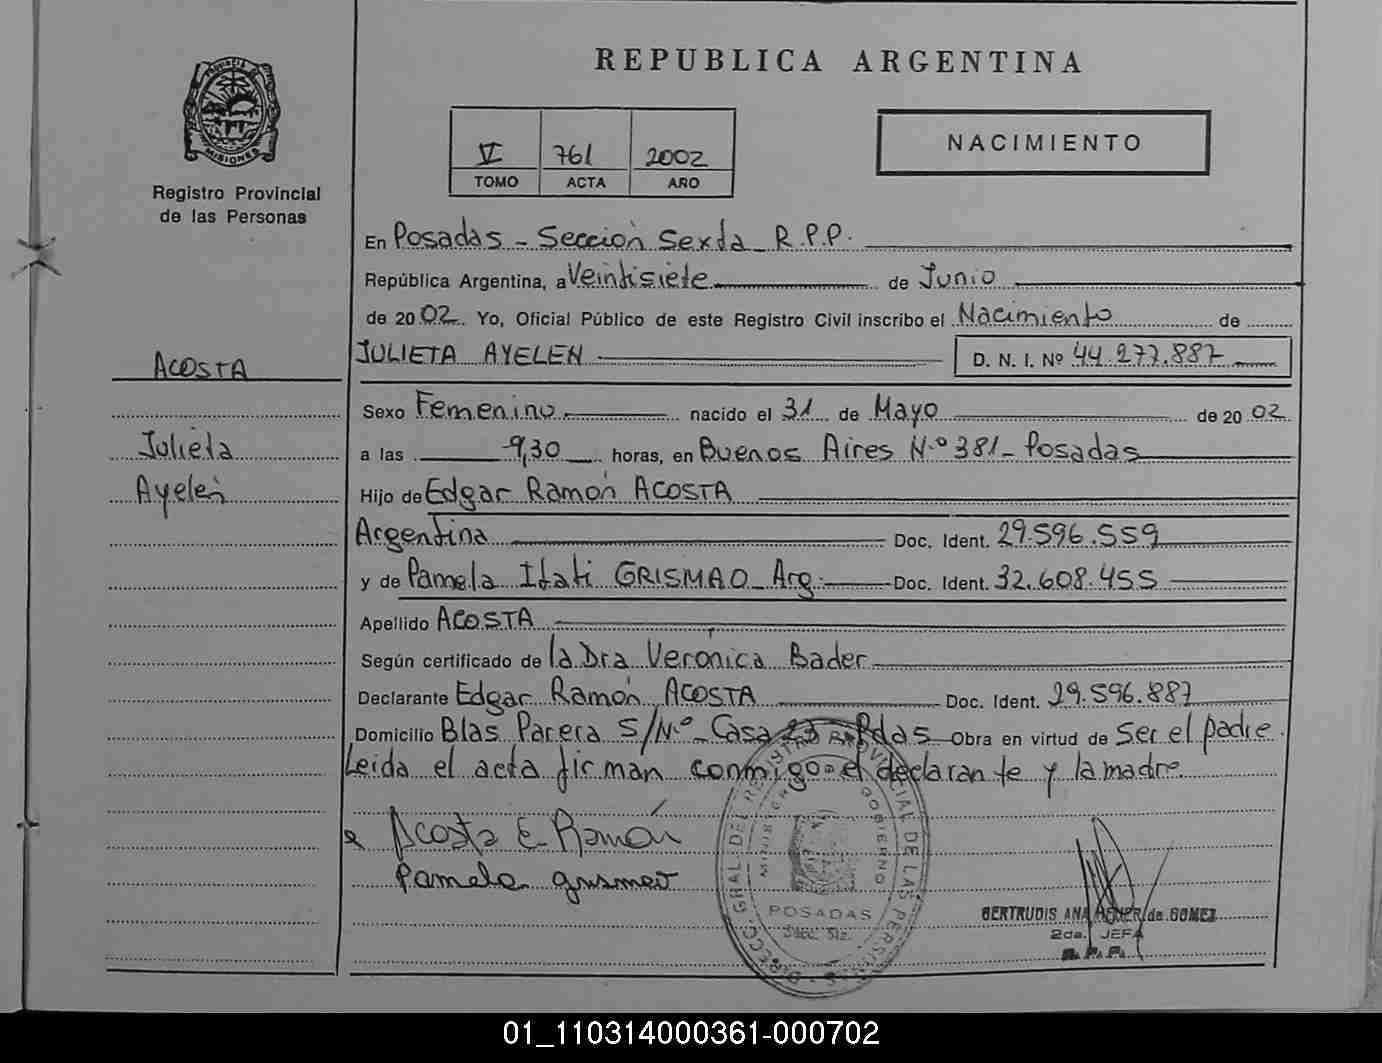 REPUBLICA ARGENTINA
PROVINCIA DE MISIONES
Registro Provincial
de las Personas
VI 761 2002
TOMO ACTA AÑO
NACIMIENTO
En Posadas - Sección Sexta R.P.P.
República Argentina, a Veintisiete de Junio
de 2002. Yo, Oficial Público de este Registro Civil inscribo el Nacimiento de
JULIETA AYELEN D. N. I. Nº 44.277.887
ACOSTA
Julieta
Ayelén
Sexo Femenino nacido el 31 de Mayo de 2002
a las 9,30 horas, en Buenos Aires N.º 381 - Posadas
Hijo de Edgar Ramón ACOSTA
Argentina Doc. Ident. 29.596.559
y de Pamela Itati GRISMAO Arg. Doc. Ident. 32.608.455
Apellido ACOSTA
Según certificado de la Dra Veronica Bader
Declarante Edgar Ramón ACOSTA Doc. Ident. 29.596.887
Domicilio Blas Parera S/Nº - Casa 23 - Pdas Obra en virtud de Ser el padre.
Leida el acta firman conmigo el declarante y la madre.
Acosta E. Ramón
Pamela
DIRECC. GRAL. DEL REGISTRO PROVINCIAL DE LAS PERSONAS
GOBIERNO
POSADAS
GERTRUDIS ANA de GOMEZ
2da. JEFA
R.P.P.
01_110314000361-000702